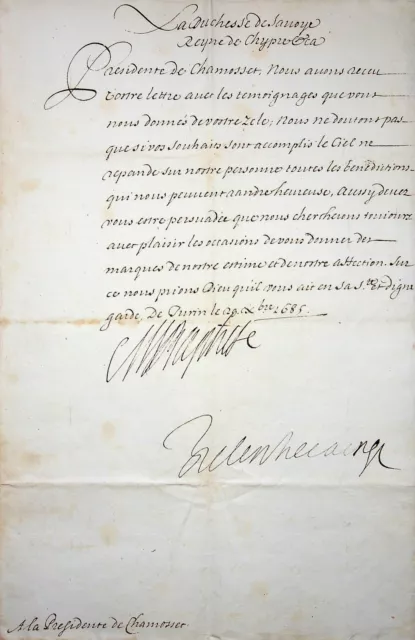 La Duchesse de Savoye
Reyne de Chypre &ca
Presidente de Chamosset, Nous avons receu
vostre lettre avec les temoignages que vous
nous donnés de vostre zele; Nous ne doutons pas
que si vos souhaits sont accomplis le Ciel ne
repande sur nostre personne toutes les benedictions
qui nous peuvent randre heureuse, Aussy devez
vous estre persuadée que nous chercherons toujours
avec plaisir les occasions de vous donner des
marques de nostre estime et de nostre affection. Sur
ce nous prions Dieu qu'il vous ait en sa s.te et digne
garde, De Turin le 29 Xbre 1685.
A la Presidente de Chamosset